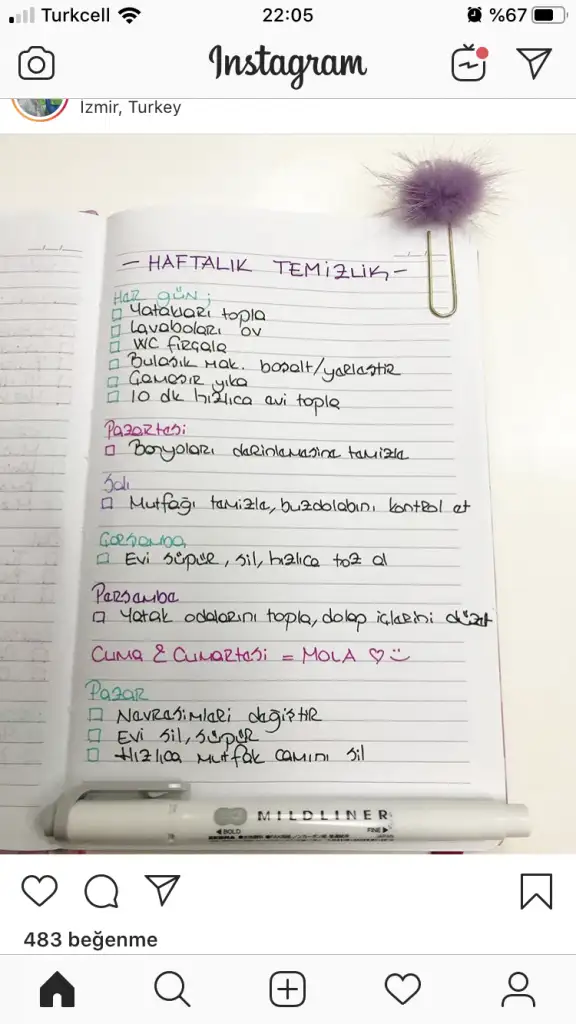 Turkcell
22:05
%67
Instagram
İzmir, Turkey
- HAFTALIK TEMİZLİK -
Her gün;
Yatakları topla
Lavaboları ov
WC fırçala
Bulaşık mak. boşalt/yerleştir
Çamaşır yıka
10 dk hızlıca evi topla
Pazartesi
Banyoları derinlemesine temizle
Salı
Mutfağı temizle, buzdolabını kontrol et
Çarşamba
Evi süpür, sil, hızlıca toz al
Perşembe
Yatak odalarını topla, dolap içlerini düzelt
Cuma & Cumartesi = MOLA ♡ :)
Pazar
Nevresimleri değiştir
Evi sil, süpür
Hızlıca mutfak camını sil
MILDLINER
◄BOLD
FINE►
ZEBRA
JAPAN
483 beğenme